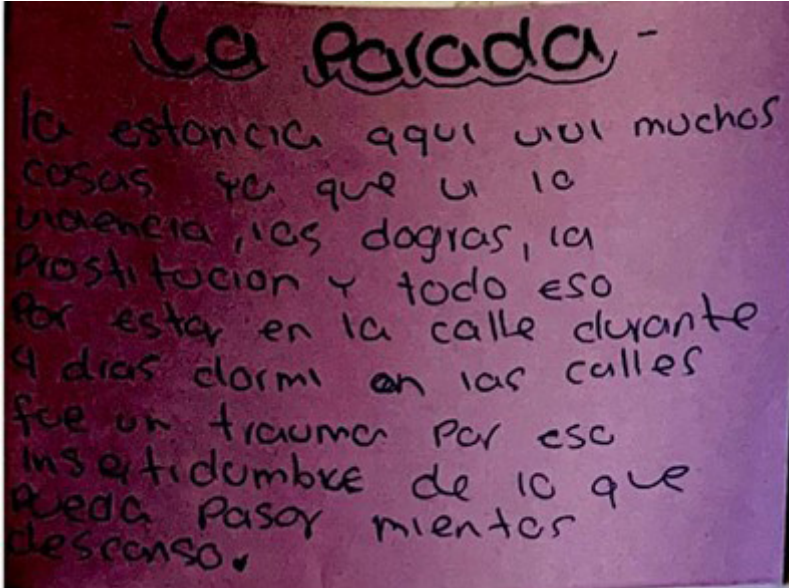 -La Parada-
la estancia aqui vivi muchas
cosas ya que vi la
violencia, las dogras, la
Prostitucion y todo eso
Por estar en la calle durante
4 dias dormi en las calles
fue un trauma por esa
insertidumbre de lo que
pueda pasar mientas
descanso.